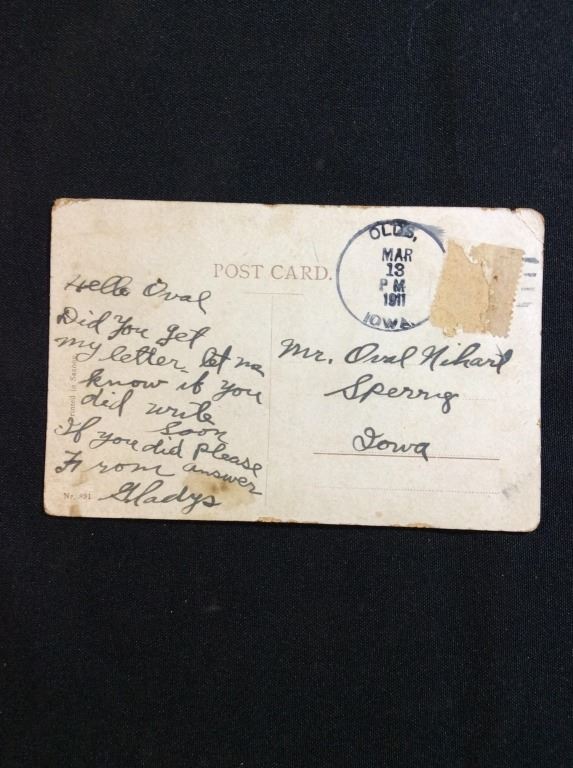 POST CARD.
OLDS,
MAR
13
P M
1911
IOWA.
Hello Oval
Did you get
my letter. let me
know if you
did write
soon
If you did please
answer
From
Gladys
Mr. Oval Nihart
Sperry
Iowa
Printed in Saxony
Nr. 891